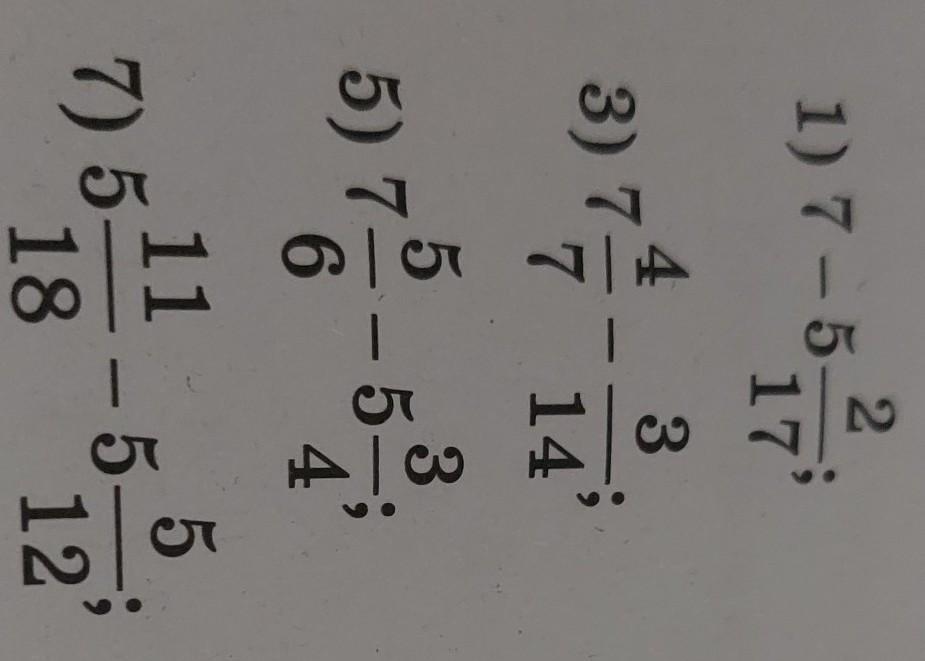 1) 7 − 5 2/17;
3) 7 4/7 − 3/14;
5) 7 5/6 − 5 3/4;
7) 5 11/18 − 5 5/12;